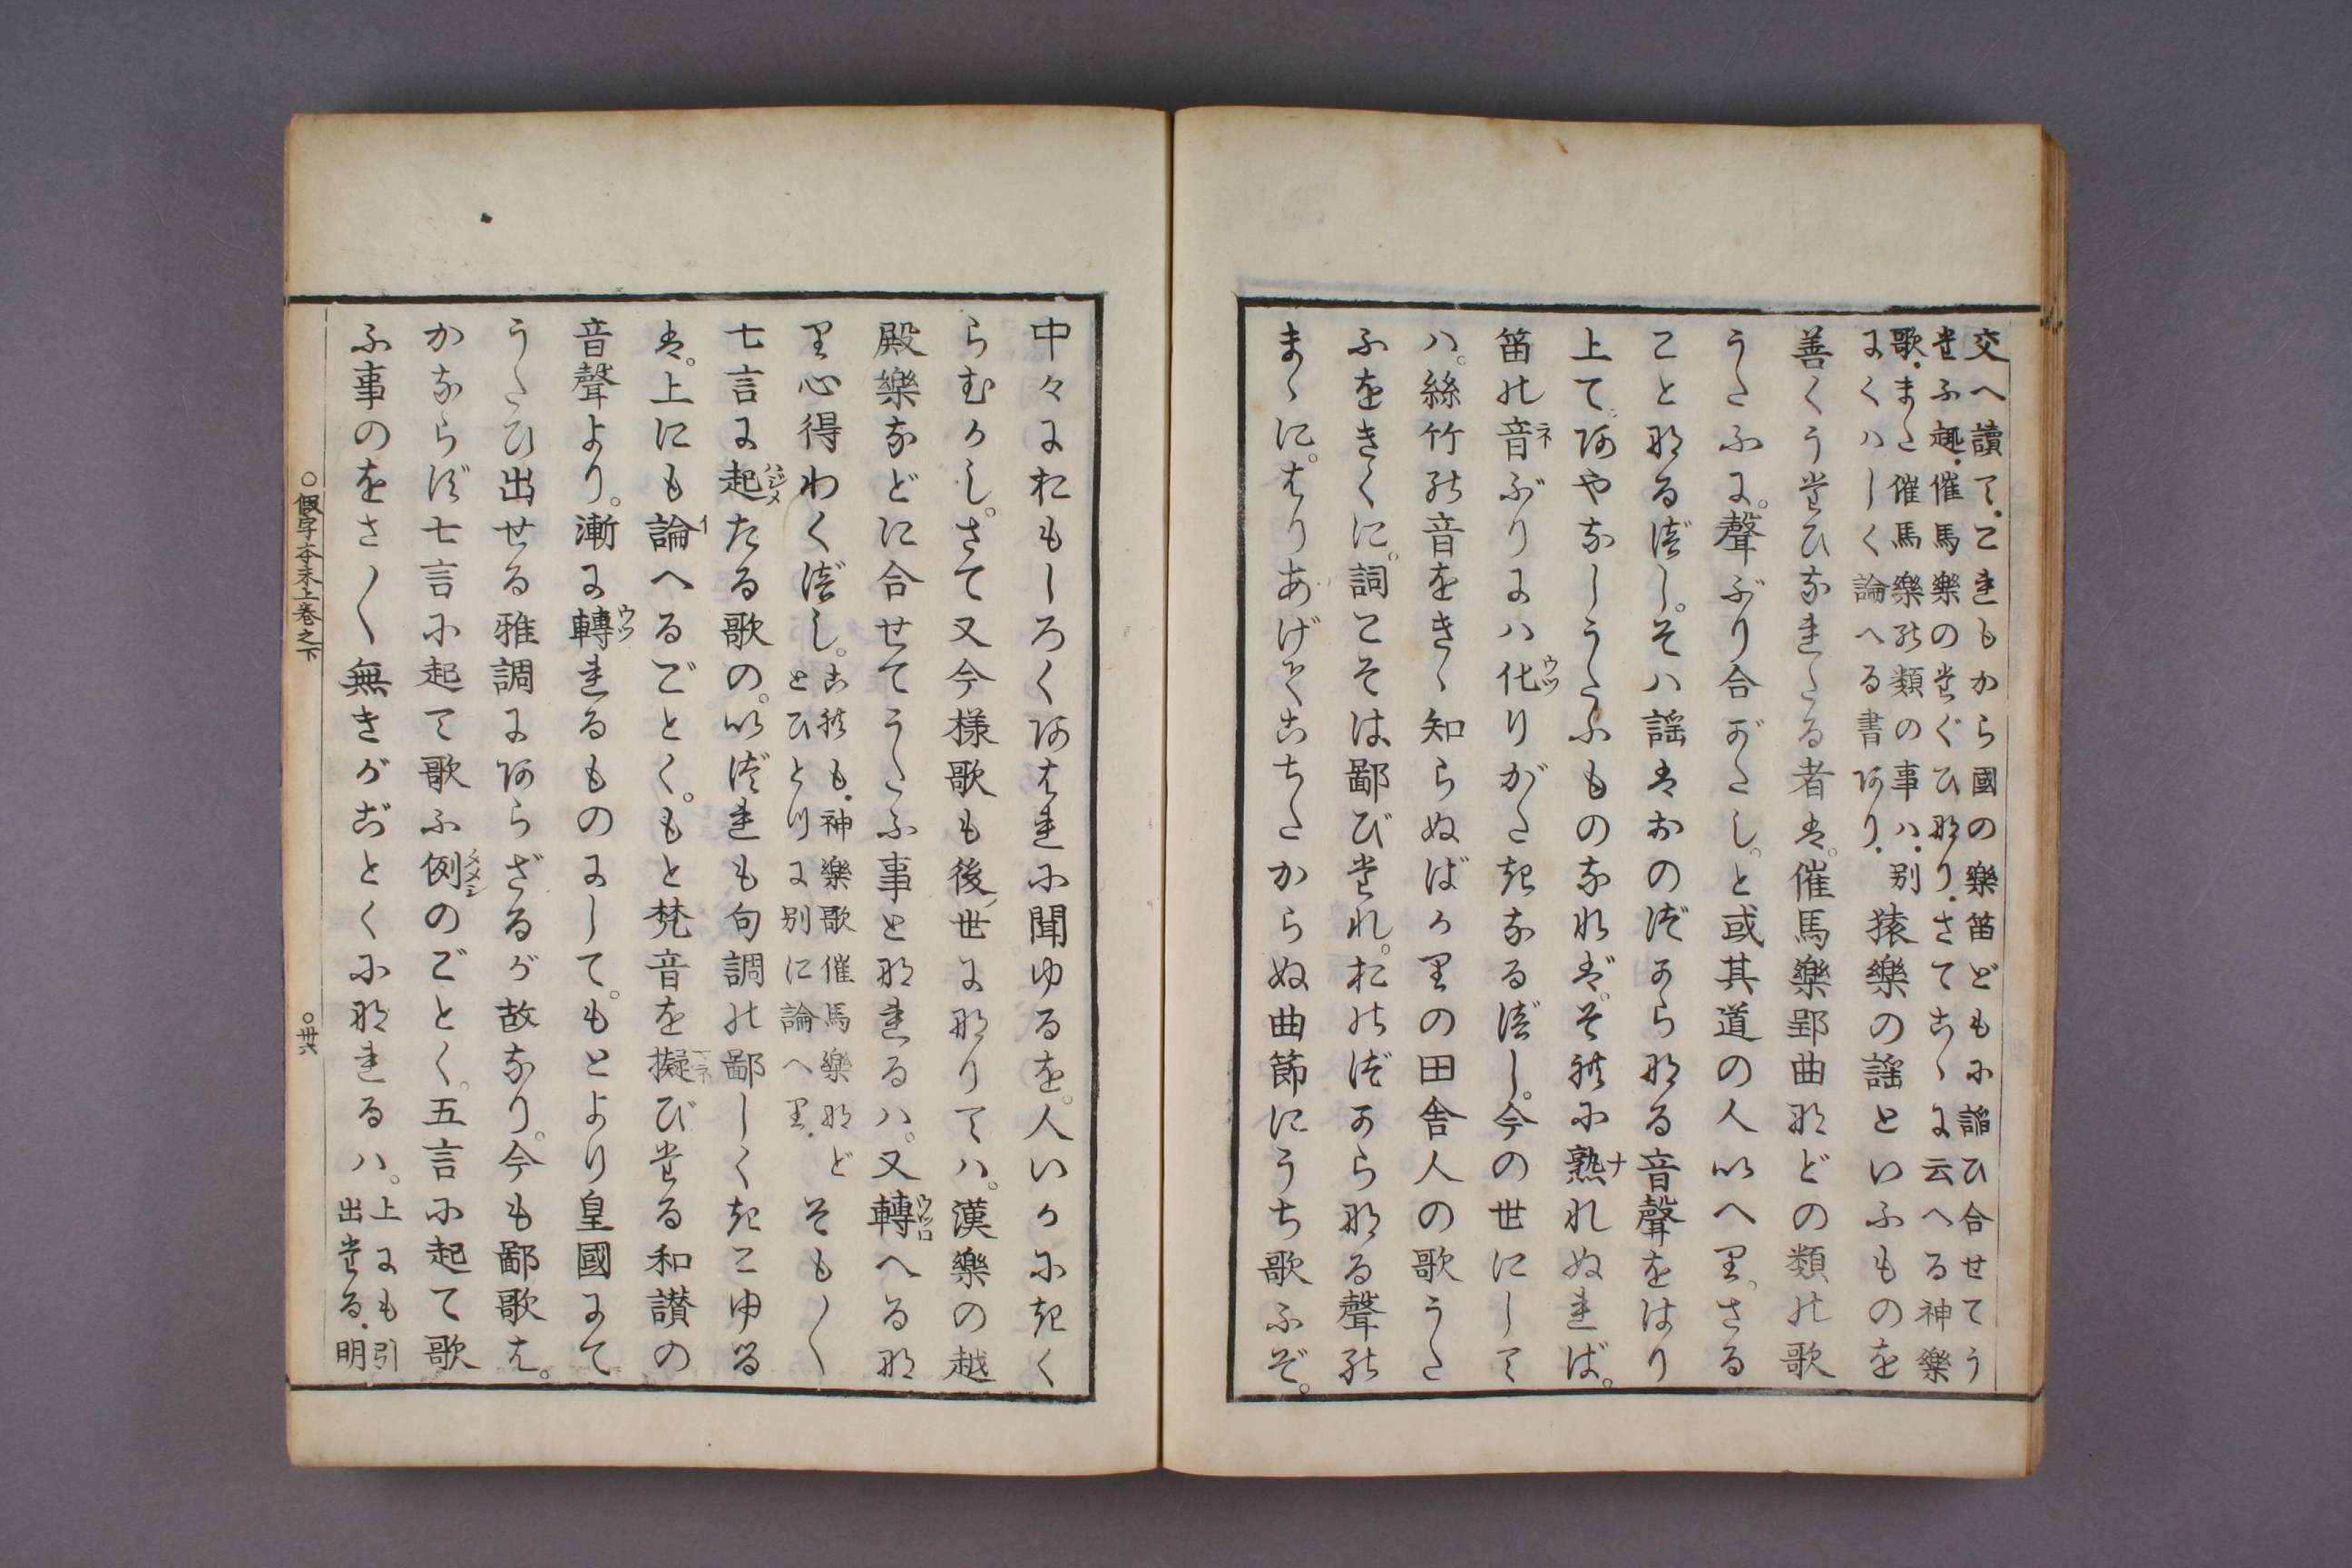 交へ讀て．これもから國の樂笛どもに謡ひ合せてう
たふ趣．催馬樂の たぐひなり．さてこゝに云へる神樂
歌．また催馬樂の類の事ハ．別
にくハしく論へる書あり．
猿樂の謡といふものを
善くうたひなれたる者は。催馬樂郢曲などの類の歌
うたふに。聲ぶり合がたし。と或其道の人いへり。さる
ことなるべし。そハ謡はおのづからなる音聲をはり
上て。あやなしうたふものなれば。それに熟れぬれば。
ナ
笛の音ぶりにハ化りがたきなるべし。今の世にして
ネ
ウツ
ハ。絲竹の音をきゝ知らぬばかりの田舎人の歌うた
ふをきくに。詞こそは鄙びたれ。おのづからなる聲の
まゝに。はりあげてこちたからぬ曲節にうち歌ふぞ。
中々におもしろくあはれに聞ゆるを。人いかにきく
らむかし。さて又今様歌も後ノ世になりてハ。漢樂の越
殿樂などに合せてうたふ事となれるハ。又轉へるな
ウツロ
り心得わくべし。
これも．神樂歌催馬樂など
とひとつに別に論へり．
そも〳〵
七言に起たる歌の。いづれも句調の鄙しくきこゆる
ハジメ
は。上にも論へるごとく。もと梵音を擬びたる和讃の
イ
マネ
音聲より。漸に轉れるものにして。もとより皇國にて
ウツ
うたひ出せる雅調にあらざるが故なり。今も鄙歌は。
かならず七言に起て歌ふ例のごとく。五言に起て歌
タメシ
ふ事のをさ〳〵無きがごとくになれるハ。
上にも引
出たる．明
○假字本末上巻之下
○卅六